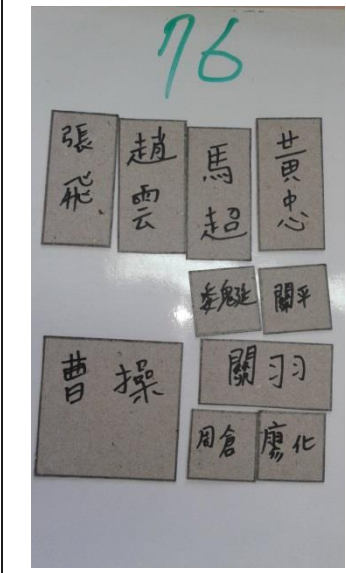 76
張飛
趙雲
馬超
黃忠
魏延
關平
曹操
關羽
周倉
廖化